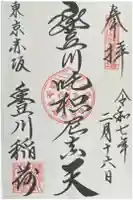 奉拝
令和七年
二月十六日
豊川吒枳尼眞天
東京赤坂
豊川稲荷